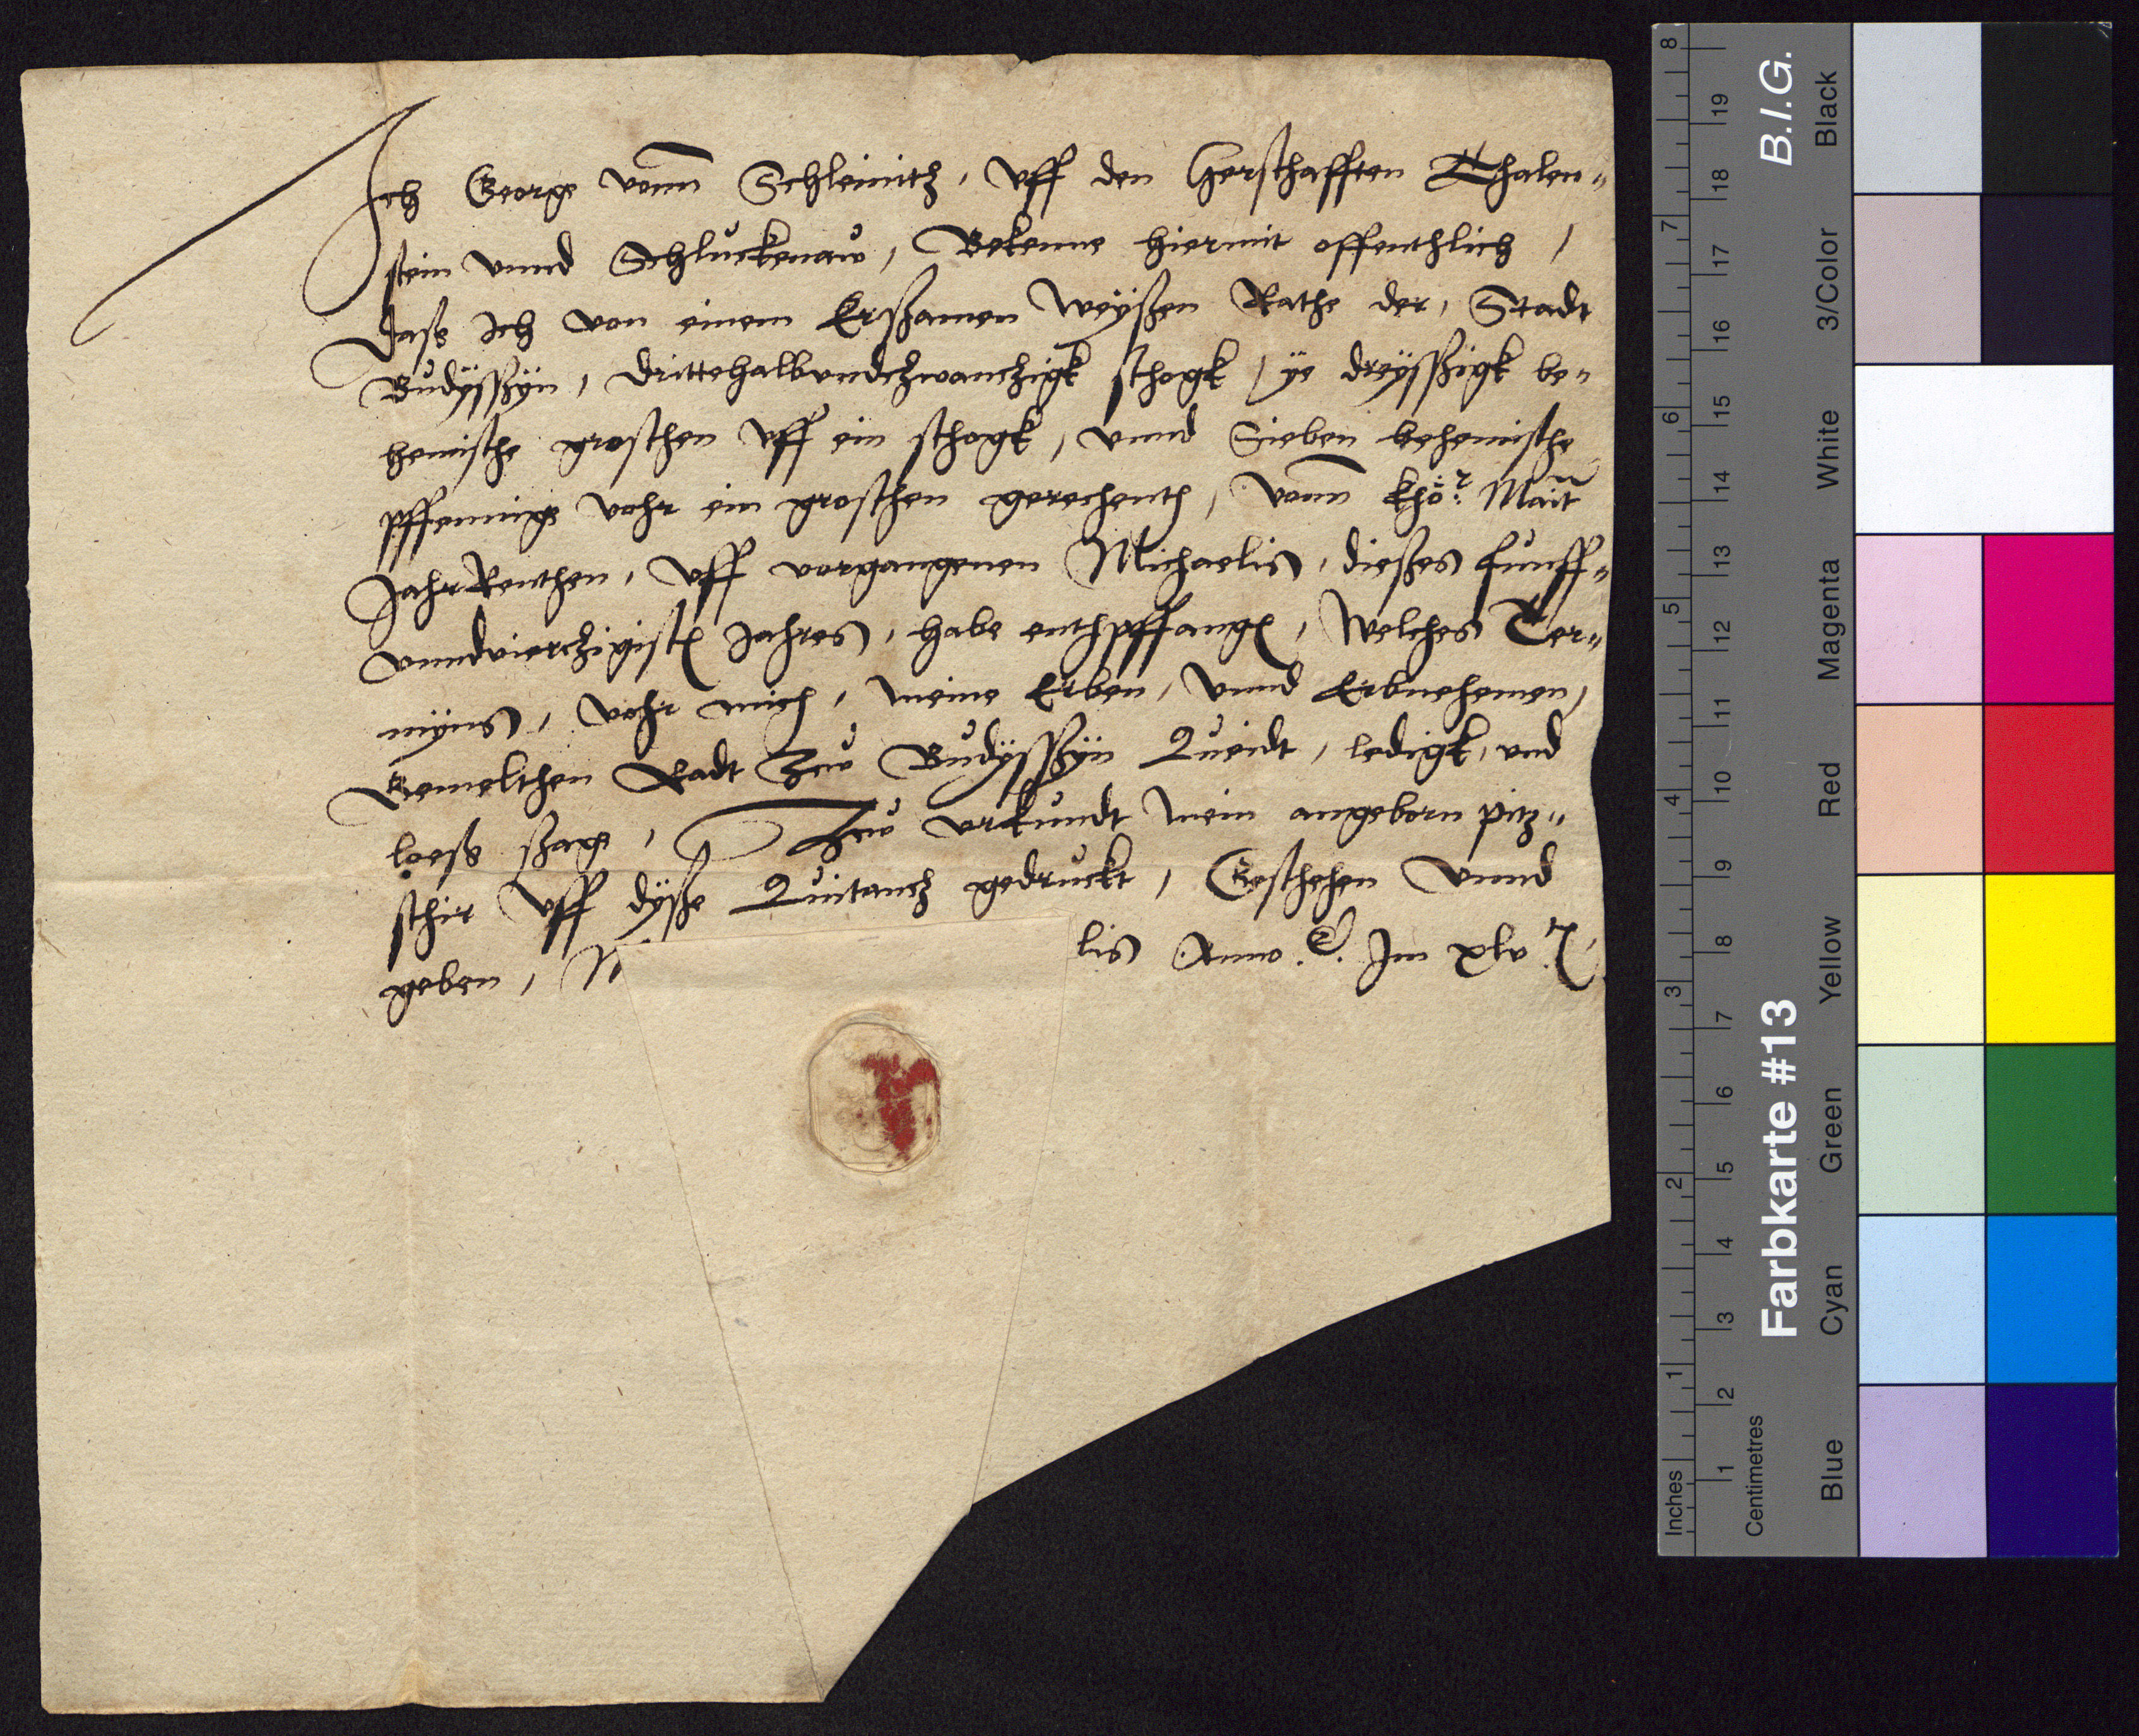 Ich George vonn Schleinitz, vff den Herschafften Thalen-
stein vnnd Schluckenaw, Bekenne hiermit offenthlich,
Dass Ich von einem Erßamen Weyßen Rathe der, Stadt
Budÿsßÿn, drittehalbvndczwanczigk schogk, ye dreÿsßigk be-
hemische groschen vff ein schogk, vnnd Sieben behemische
pffennige vohr ein groschen gerechenth, vonn khö:r Mait
Jahr Renthen, vff vorgangenen Michaelis, dießes funff-
vnndvierczigisten Jahres, habe enthpffangen, Welches Ter-
myns, vohr mich, meine Erben, vnnd Erbnehemen,
Gemelthen Radt Zcw Budÿsßÿn Queidt, ledigk, vnd
loess sage, Zcw vrkundt mein angeborn pitz-
schir vff dyße Quitancz gedruckt, Geschehen Vnnd
geben, lis Anno .&. Im xlv
Inches 1 2 3 4 5 6 7 8
Centimetres 1 2 3 4 5 6 7 8 9 10 11 12 13 14 15 16 17 18 19
Farbkarte #13 B.I.G.
Blue Cyan Green Yellow Red Magenta White 3/Color Black